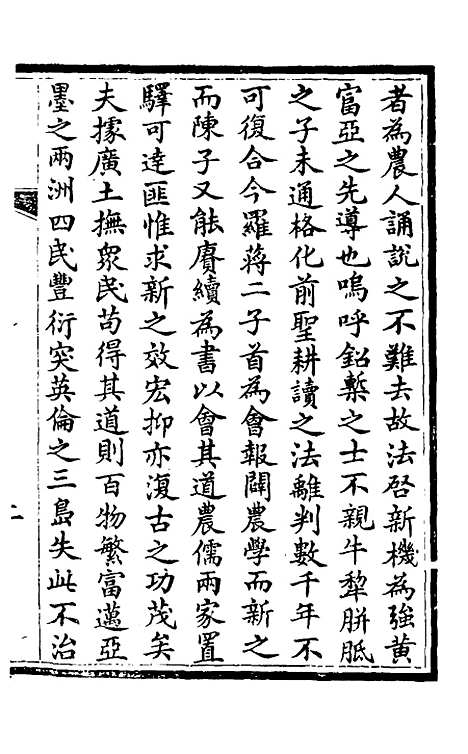 者為農人誦說之不難去故法啓新機為強黃
富亞之先導也嗚呼鉛槧之士不親牛犂胼胝
之子未通格化前聖耕讀之法離判數千年不
可復合今羅蔣二子首為會報闢農學而新之
而陳子又能賡續為書以會其道農儒兩家置
驛可達匪惟求新之效宏抑亦復古之功茂矣
夫據廣土撫衆民苟得其道則百物繁富邁亞
墨之兩洲四民豐衍突英倫之三島失此不治
二